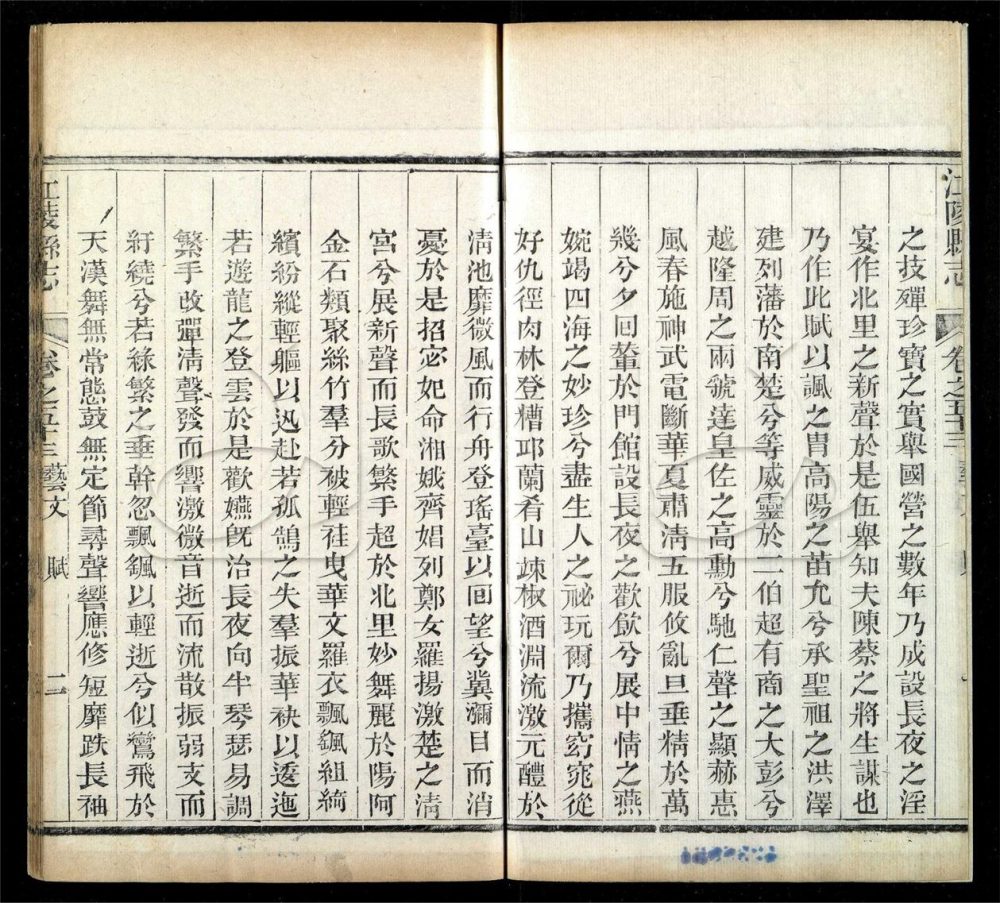 江陵縣志
卷之五十三
之技殫珍寶之實舉國營之數年乃成設長夜之淫
宴作北里之新聲於是伍舉知夫陳蔡之將生謀也
乃作此賦以諷之胄高陽之苗允兮承聖祖之洪澤
建列藩於南楚兮等威靈於二伯超有商之大彭兮
越隆周之兩虢達皇佐之高勳兮馳仁聲之顯赫惠
風春施神武電斷華夏肅清五服攸亂旦垂精於萬
幾兮夕回輦於門館設長夜之歡飲兮展中情之燕
婉竭四海之妙珍兮盡生人之祕玩爾乃攜窈窕從
好仇徑肉林登糟邱蘭肴山竦椒酒淵流激元醴於
清池靡微風而行舟登瑤臺以回望兮冀瀰目而消
憂於是招宓妃命湘娥齊娼列鄭女羅揚激楚之清
宮兮展新聲而長歌繁手超於北里妙舞麗於陽阿
金石類聚絲竹羣分被輕袿曳華文羅衣飄颻組綺
繽紛縱輕軀以迅赴若孤鵠之失羣振華袂以逶迤
若遊龍之登雲於是歡嬿旣洽長夜向半琴瑟易調
繁手改彈清聲發而響激微音逝而流散振弱支而
紆繞兮若綠繁之垂幹忽飄颻以輕逝兮似鸞飛於
天漢舞無常態鼓無定節尋聲響應修短靡跌長袖
江陵縣志
卷之五十三 藝文 賦 二